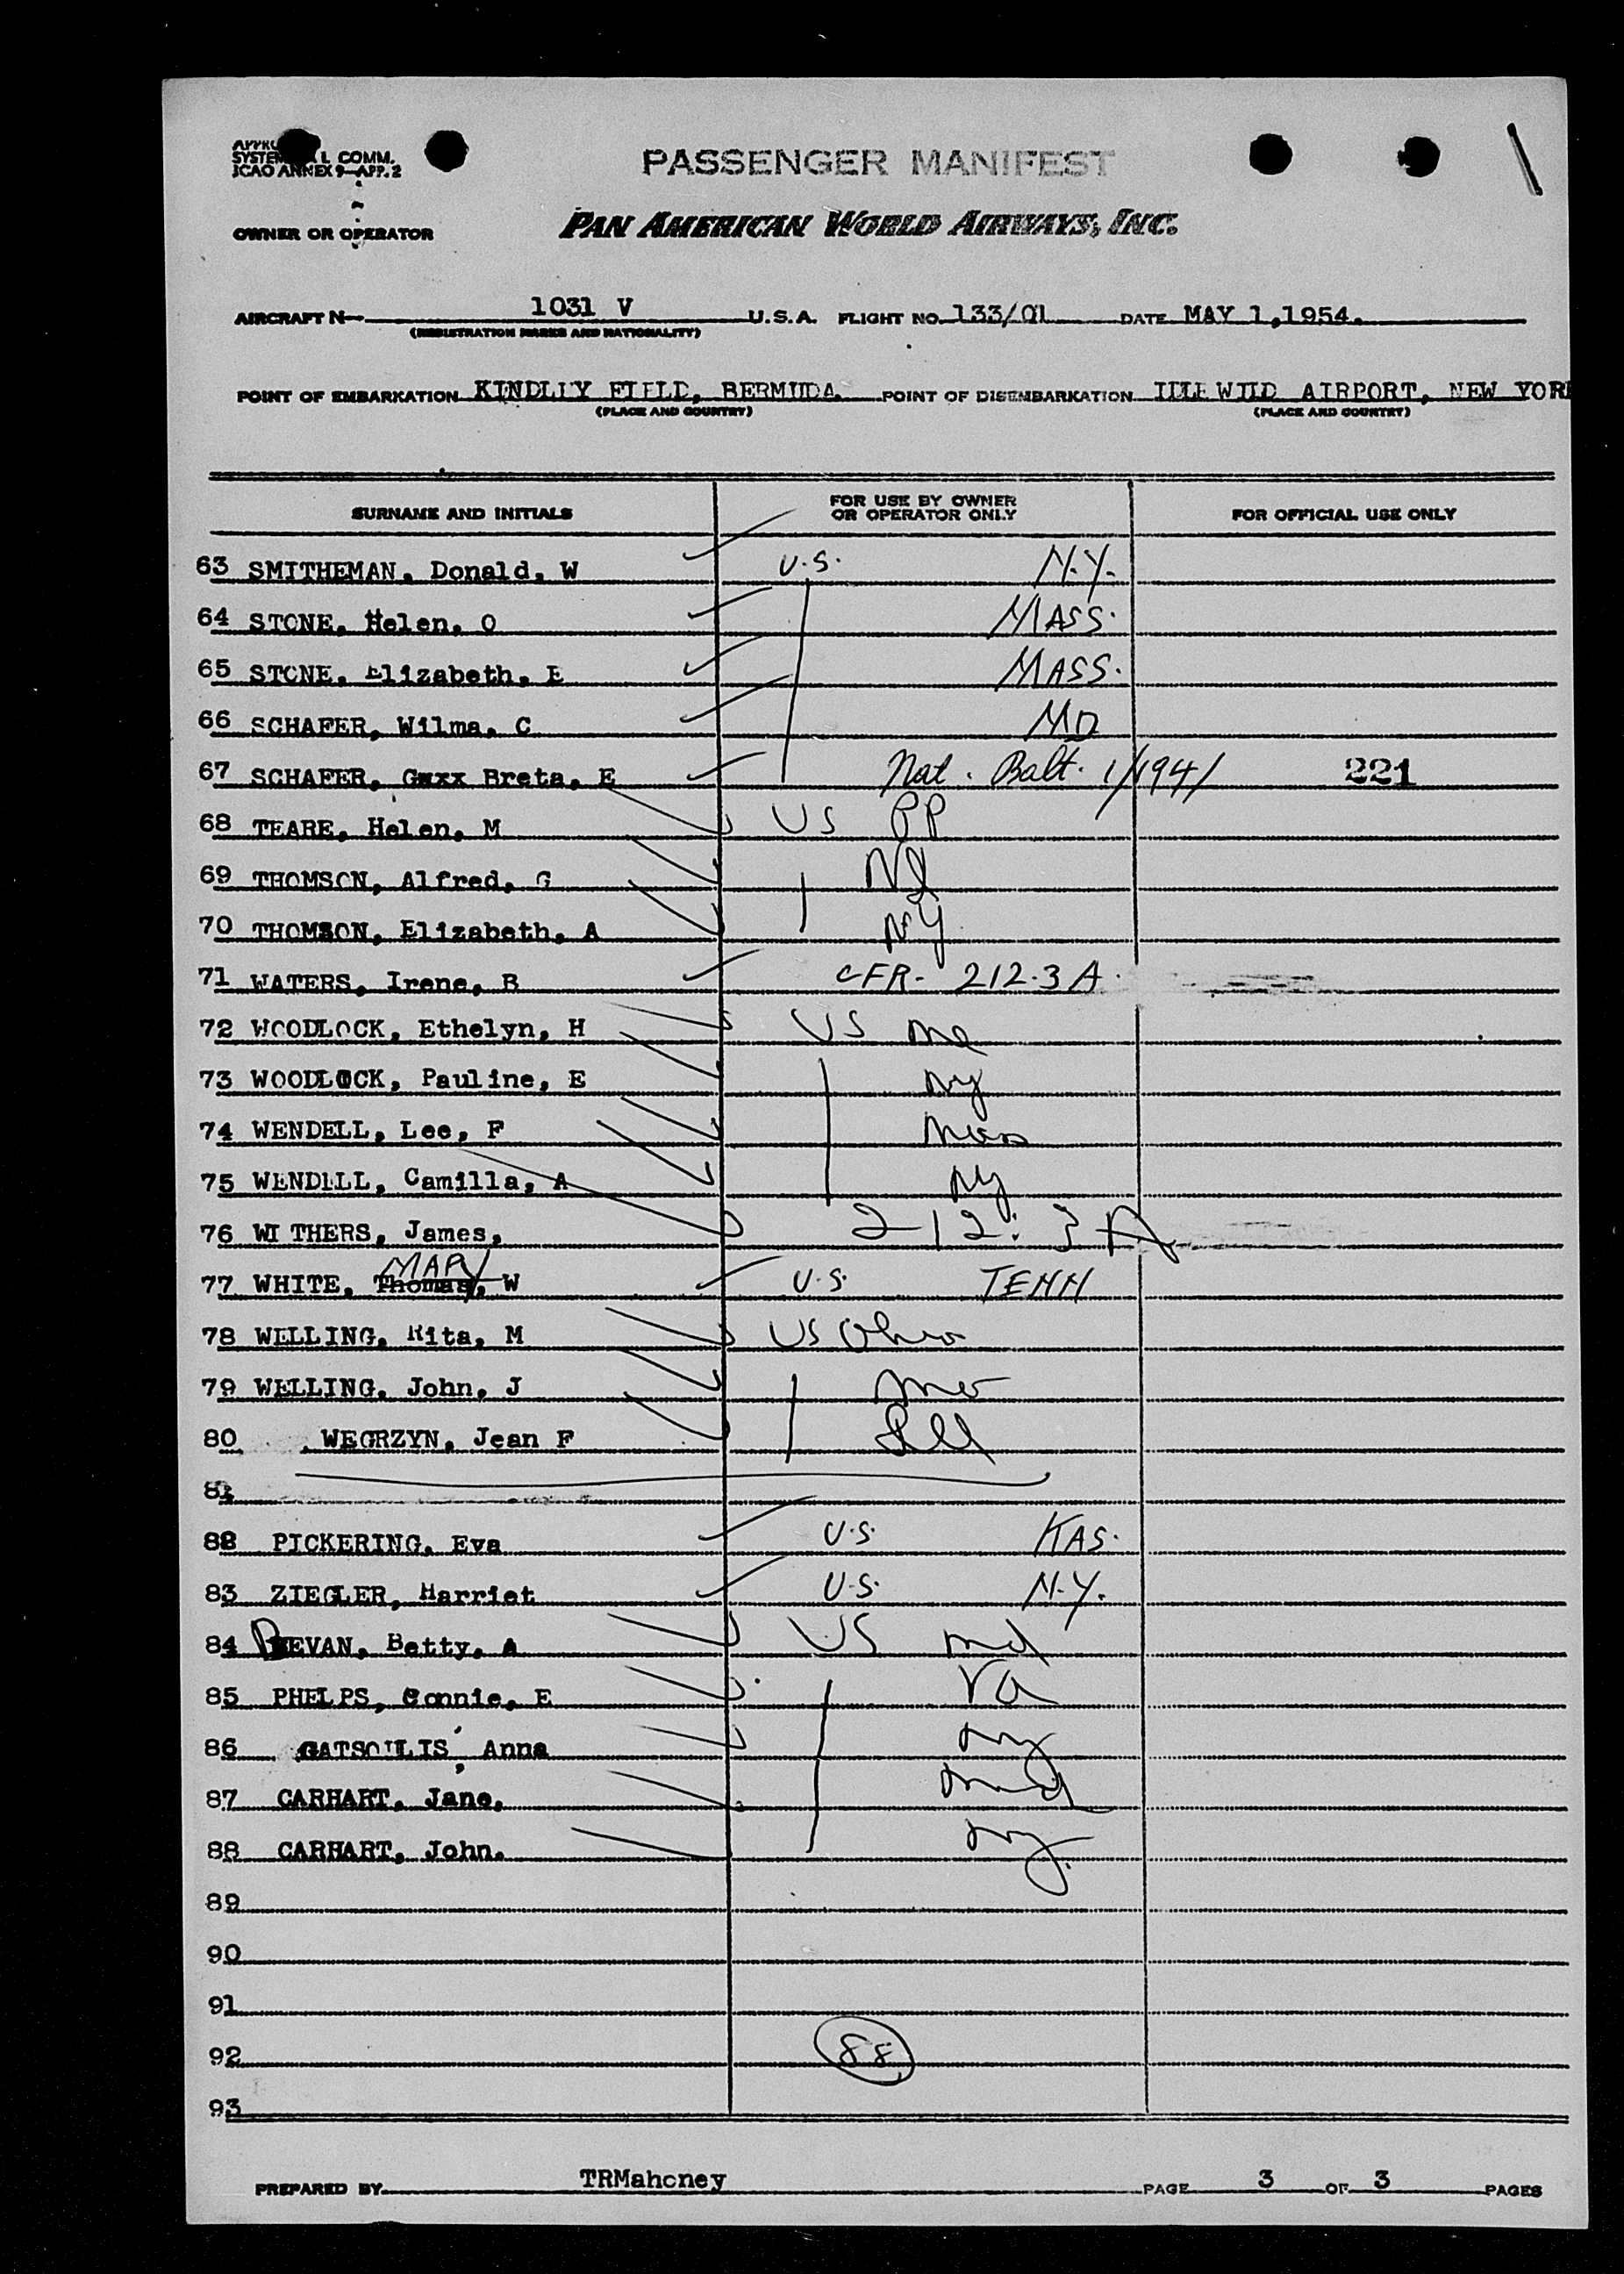 SYSTEM L COMM.
ICAO ANNEX 9—APP. 2
PASSENGER MANIFEST
OWNER OR OPERATOR PAN AMERICAN WORLD AIRWAYS, INC.
AIRCRAFT N— 1031 V U.S.A. FLIGHT NO. 133/01 DATE MAY 1,1954.
(REGISTRATION MARKS AND NATIONALITY)
POINT OF EMBARKATION KINDLEY FIELD, BERMUDA. POINT OF DISEMBARKATION IDLEWILD AIRPORT, NEW YORK
(PLACE AND COUNTRY) (PLACE AND COUNTRY)
SURNAME AND INITIALS FOR USE BY OWNER OR OPERATOR ONLY FOR OFFICIAL USE ONLY
63 SMITHEMAN, Donald, W U.S. N.Y.
64 STONE, Helen, O MASS.
65 STONE, Elizabeth, E MASS.
66 SCHAFER, Wilma, C MD
67 SCHAFER, Gaxx Breta, E Nat. Balt. 1/1941 221
68 TEARE, Helen, M US PP
69 THOMSON, Alfred, G NJ
70 THOMSON, Elizabeth, A NY
71 WATERS, Irene, B CFR- 212.3A
72 WOODLOCK, Ethelyn, H US Me
73 WOODLOCK, Pauline, E NY
74 WENDELL, Lee, F Mass
75 WENDELL, Camilla, A NY
76 WITHERS, James, 212.3A
77 WHITE, Thomas, W MARY U.S. TENN
78 WELLING, Rita, M US Ohio
79 WELLING, John, J Mo
80 WEGRZYN, Jean F Ill
81
82 PICKERING, Eva U.S. KAS.
83 ZIEGLER, Harriet U.S. N.Y.
84 BEVAN, Betty, A US Md
85 PHELPS, Connie, E Va
86 GATSOULIS, Anna NY
87 CARHART, Jane, Md
88 CARHART, John. NY.
89
90
91
92 88
93
PREPARED BY TRMahoney PAGE 3 OF 3 PAGES